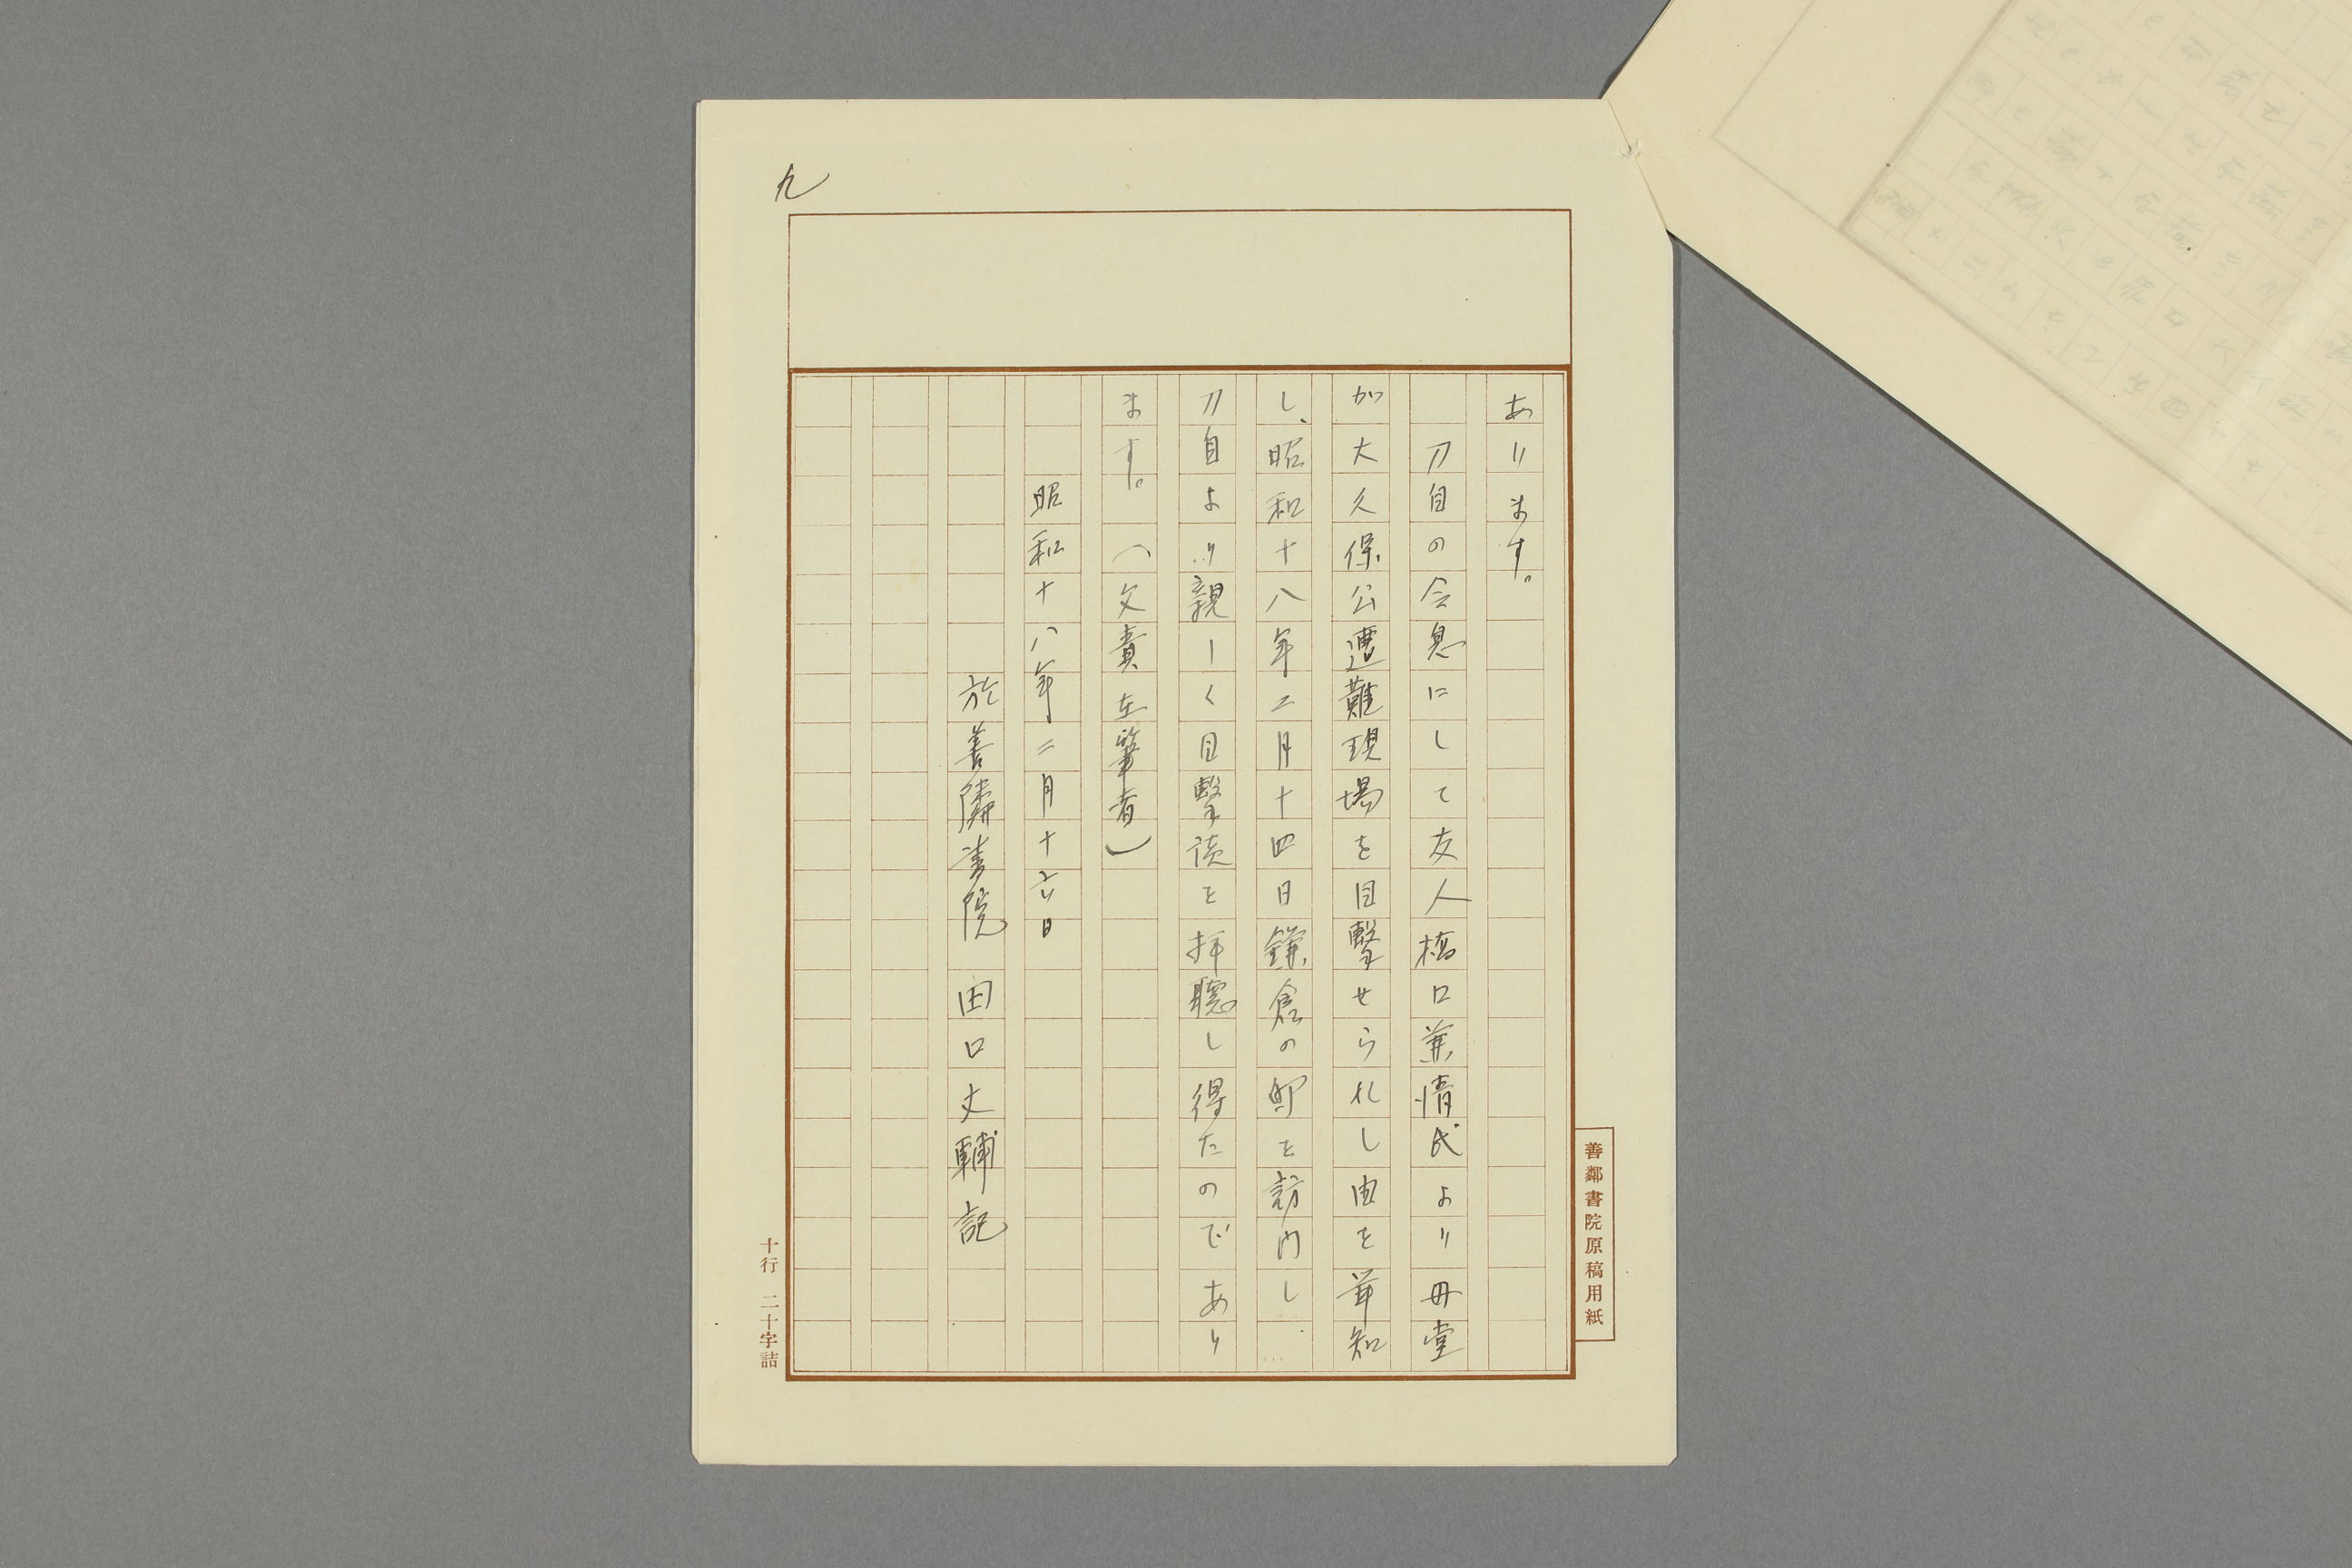 九
あります。
刀自の令息にして友人橋口兼情氏より毋堂
が大久保公遭難現場を目撃せられし由を
知
し、昭和十八年二月十四日鎌倉の邸を訪问し
刀自より親しく目撃談を拝聴し得たのであり
ます。（文責在筆者）
昭和十八年二月十六日
於善隣書院 田口丈輔記
善鄰書院原稿用紙
十行 二十字詰